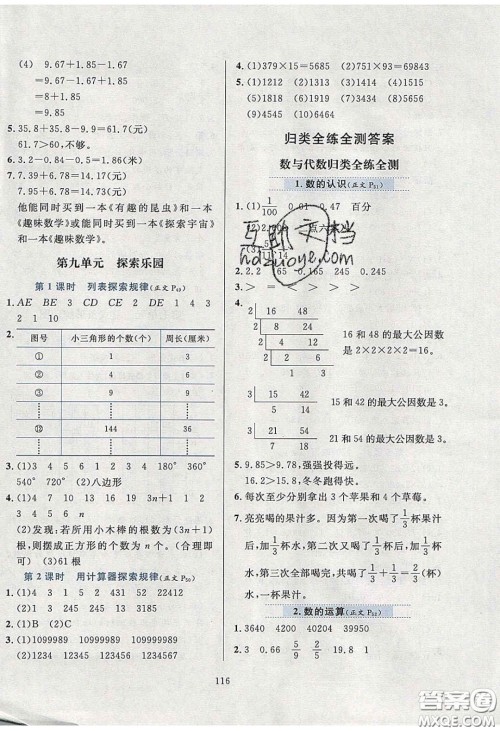 (4) 9.67+1.85-1.67
=9.67-1.67+1.85
=8+1.85
=9.85
5. 35.8+35.8-9.9=61.7(元)
61.7>61,不够。
6. 3.2-0.84-0.95=1.41(米)
7. 7.39+6.34=13.73(元)
7.95+6.78=14.73(元)
他能同时买到一本《有趣的昆虫》和一本
《趣味数学》或能同时买到一本《探索宇宙》
和一本《趣味数学》。
第九单元 探索乐园
第1课时 列表探索规律(正文P49)
1. AE BE 3 CD CE 2 DE 1 4 3
2 1 10
2. 图号 小三角形的个数(个) 周长(厘米)
① 1 3
② 4 6
③ 9 9
⋮ ⋮ ⋮
⑫ 144 36
⋮ ⋮ ⋮
3. (1)3 4 5 6 1 2 4 180° 360°
540° 720° (2)八边形
4. (1)4 7 10 13 16 19 3n+1 1 2
3 4 5 6 n
(2)发现:若所用小木棒的根数为(3n+1)
根,则摆成正方形的个数为 n 个。(合理即
可) (3)61根
第2课时 用计算器探索规律(正文P50)
1. (1)B (2)C
3. (1)1099989 10999989 109999989
(2)1234 12345 123456 1234567
4. (1)379×15=5685 (2)751×93=69843
5. (1)1212 (2)1313 (3)1414 (4)1515
(5)1818 (6)1919 (7)2020 (8)3434
(9)4545 (10)6464
归类全练全测答案
数与代数归类全练全测
1.数的认识(正文P51)
1. (1)1/100 0.01 0.47 百分
(2)0.702
2. 2 2 65 0.165 265 2.245
3. > > = > <
4. 2 16 48
2 8 24
2 4 12
2 2 6
1 3
16 和 48 的最大公因数
是 2×2×2×2=16。
3 15 42
5 14
15 和 42 的最大公因数是 3。
3 21 54
7 18
21 和 54 的最大公因数是 3。
5. 9.85>9.78,强强投得远。
16.2>15.8,乐乐跑得快。
6. 每次至少分别拿出 3 个苹果和 4 个草莓。
7. 亮亮喝的果汁多。因为第一次喝了1/3杯果汁
后,加1/3杯水,第二次又喝了1/3杯后,又加1/3
杯水,第三次全部喝完,共喝了1/3+1/3=2/3杯水,
一杯果汁。
2.数的运算(正文P52)
1. 3640 4200 40280 39950
2. 3 0.66 5/9 2/5 19.8 1
116
互助文档
hdzuoye.com
答案圈
MXQE.COM